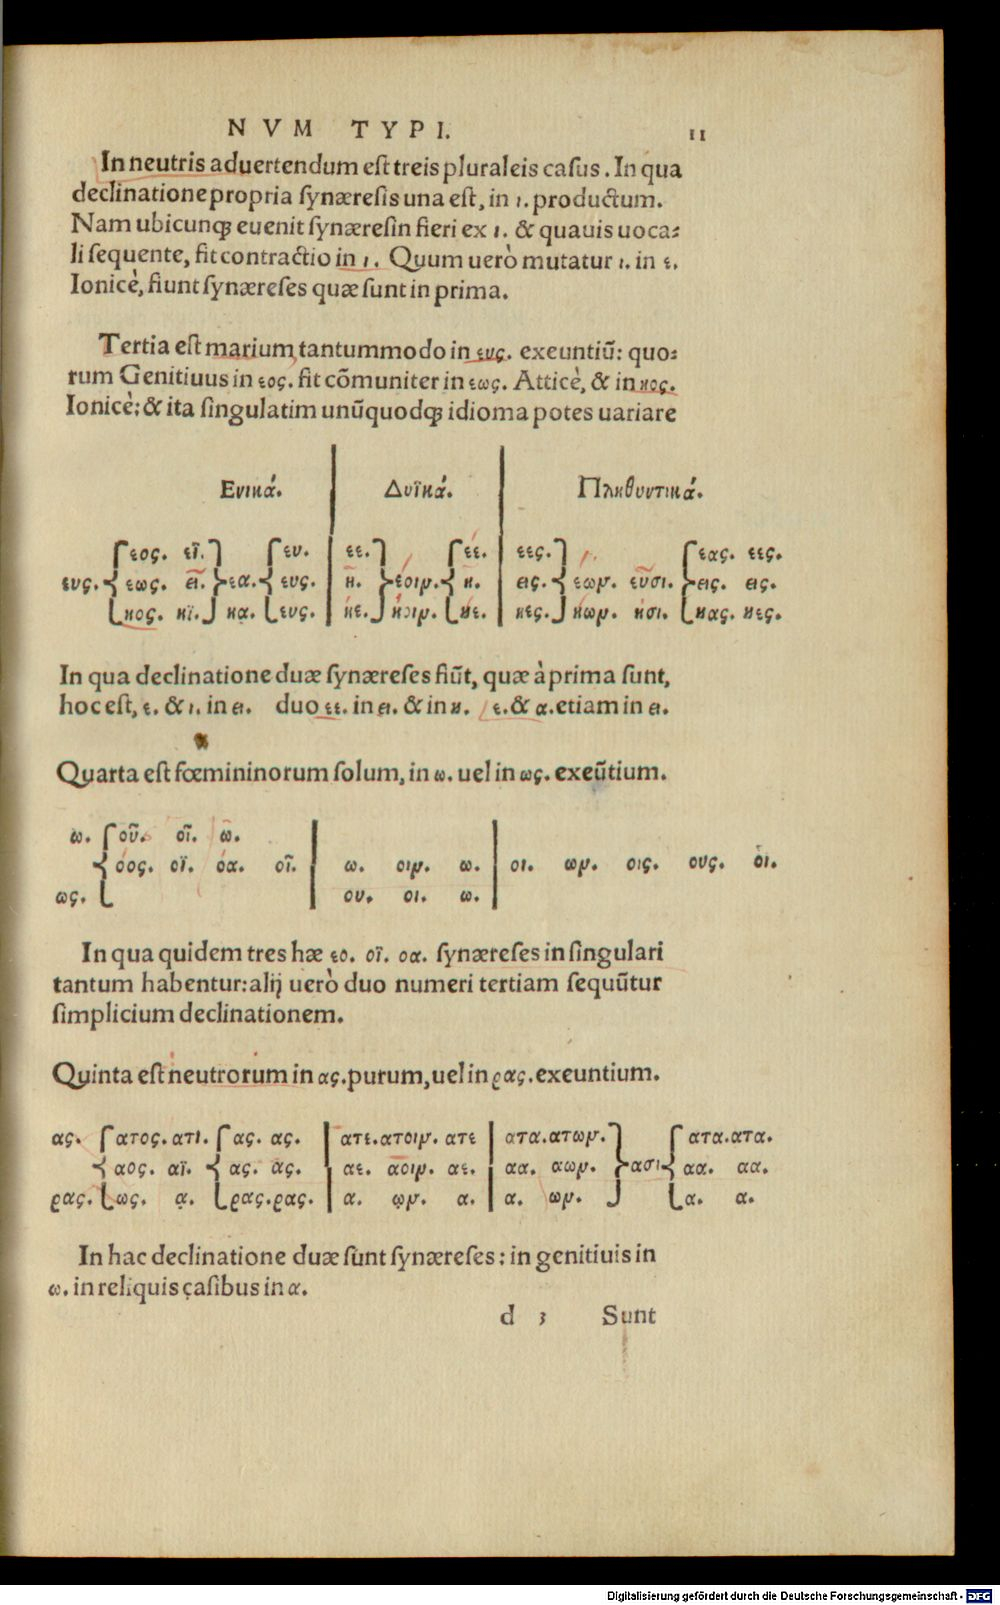 NVM TYPI. 11
In neutris aduertendum est treis pluraleis casus. In qua
declinatione propria synæresis una est, in ι. productum.
Nam ubicunq; euenit synæresin fieri ex ι. & quauis uoca-
li sequente, fit contractio in ι. Quum uerò mutatur ι. in ε.
Ionicè, fiunt synæreses quæ sunt in prima.
Tertia est marium tantummodo in ευς. exeuntiũ: quo-
rum Genitiuus in εος. fit cõmuniter in εως. Atticè, & in ηος.
Ionicè: & ita singulatim unũquodq; idioma potes uariare
Ενικά. Δυϊκά. Πληθυντικά.
εος. εῖ. ευ. εε. εέ. εες. εας. εες.
ευς. εως. ει. εα. ευς. η. έοιν. η. εις. έων. εῦσι. εις. εις.
ηος. ηϊ. ηα. ευς. ῆε. ήοιν. ῆε. ηες. ήων. ῆσι. ηας. ηες.
In qua declinatione duæ synæreses fiũt, quæ à prima sunt,
hoc est, ε. & ι. in ει. duo εε. in ει. & in η. ε. & α. etiam in ει.
Quarta est fœmininorum solum, in ω. uel in ως. exeũtium.
ω. οῦ. οῖ. ω.
όος. οϊ. όα. οῖ. ω. οιν. ω. οι. ων. οις. ους. οι.
ως. ου. οι. ω.
In qua quidem tres hæ εο. οϊ. οα. synæreses in singulari
tantum habentur: alij uerò duo numeri tertiam sequũtur
simplicium declinationem.
Quinta est neutrorum in ας. purum, uel in ρας. exeuntium.
ας. ατος. ατι. ας. ας. ατε. ατοιν. ατε ατα. ατων. ατα. ατα.
αος. αϊ. ας. ας. αε. αοιν. αε. αα. αων. ασι αα. αα.
ρας. ως. ᾳ. ρας. ρας. α. ῳν. α. α. ων. α. α.
In hac declinatione duæ sunt synæreses: in genitiuis in
ω. in reliquis casibus in α.
d 3 Sunt
Digitalisierung gefördert durch die Deutsche Forschungsgemeinschaft - DFG